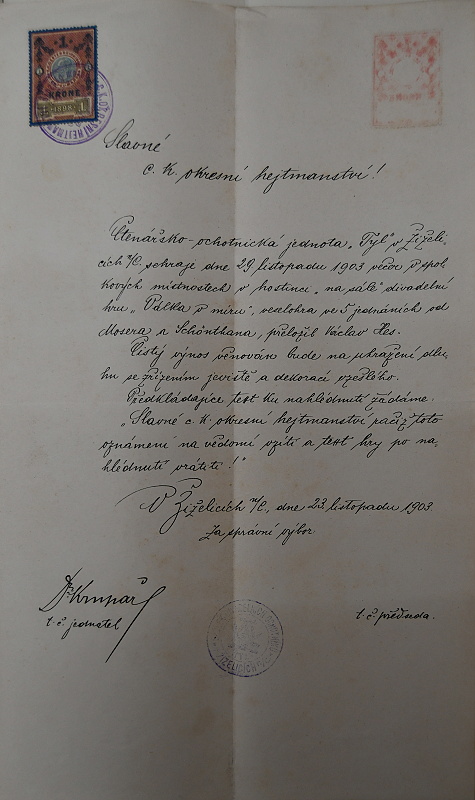 1
KRONE
1898
Slavné
c. k. okresní hejtmanství!
Čtenářsko-ochotnická jednota „Tyl" v Žizeli-
cích n/C. sehraje dne 29. listopadu 1903 večer v spol-
kových místnostech v hostinci „na sále" divadelní
hru „Válka v míru", veselohra ve 5 jednáních od
Mosera a Schönthana, přeložil Václav Hes.
Čistý výnos věnován bude na uhražení dlu-
hu se zřízením jeviště a dekorací vzešlého.
Předkládajíce text ku nahlédnutí žádáme:
„Slavné c. k. okresní hejtmanství račiž toto
oznámení na vědomí vzíti a text hry po na-
hlédnutí vrátiti!"
V Žiželicích n/C, dne 23. listopadu 1903
Za správní výbor
t. č. jednatel
t. č. předseda.